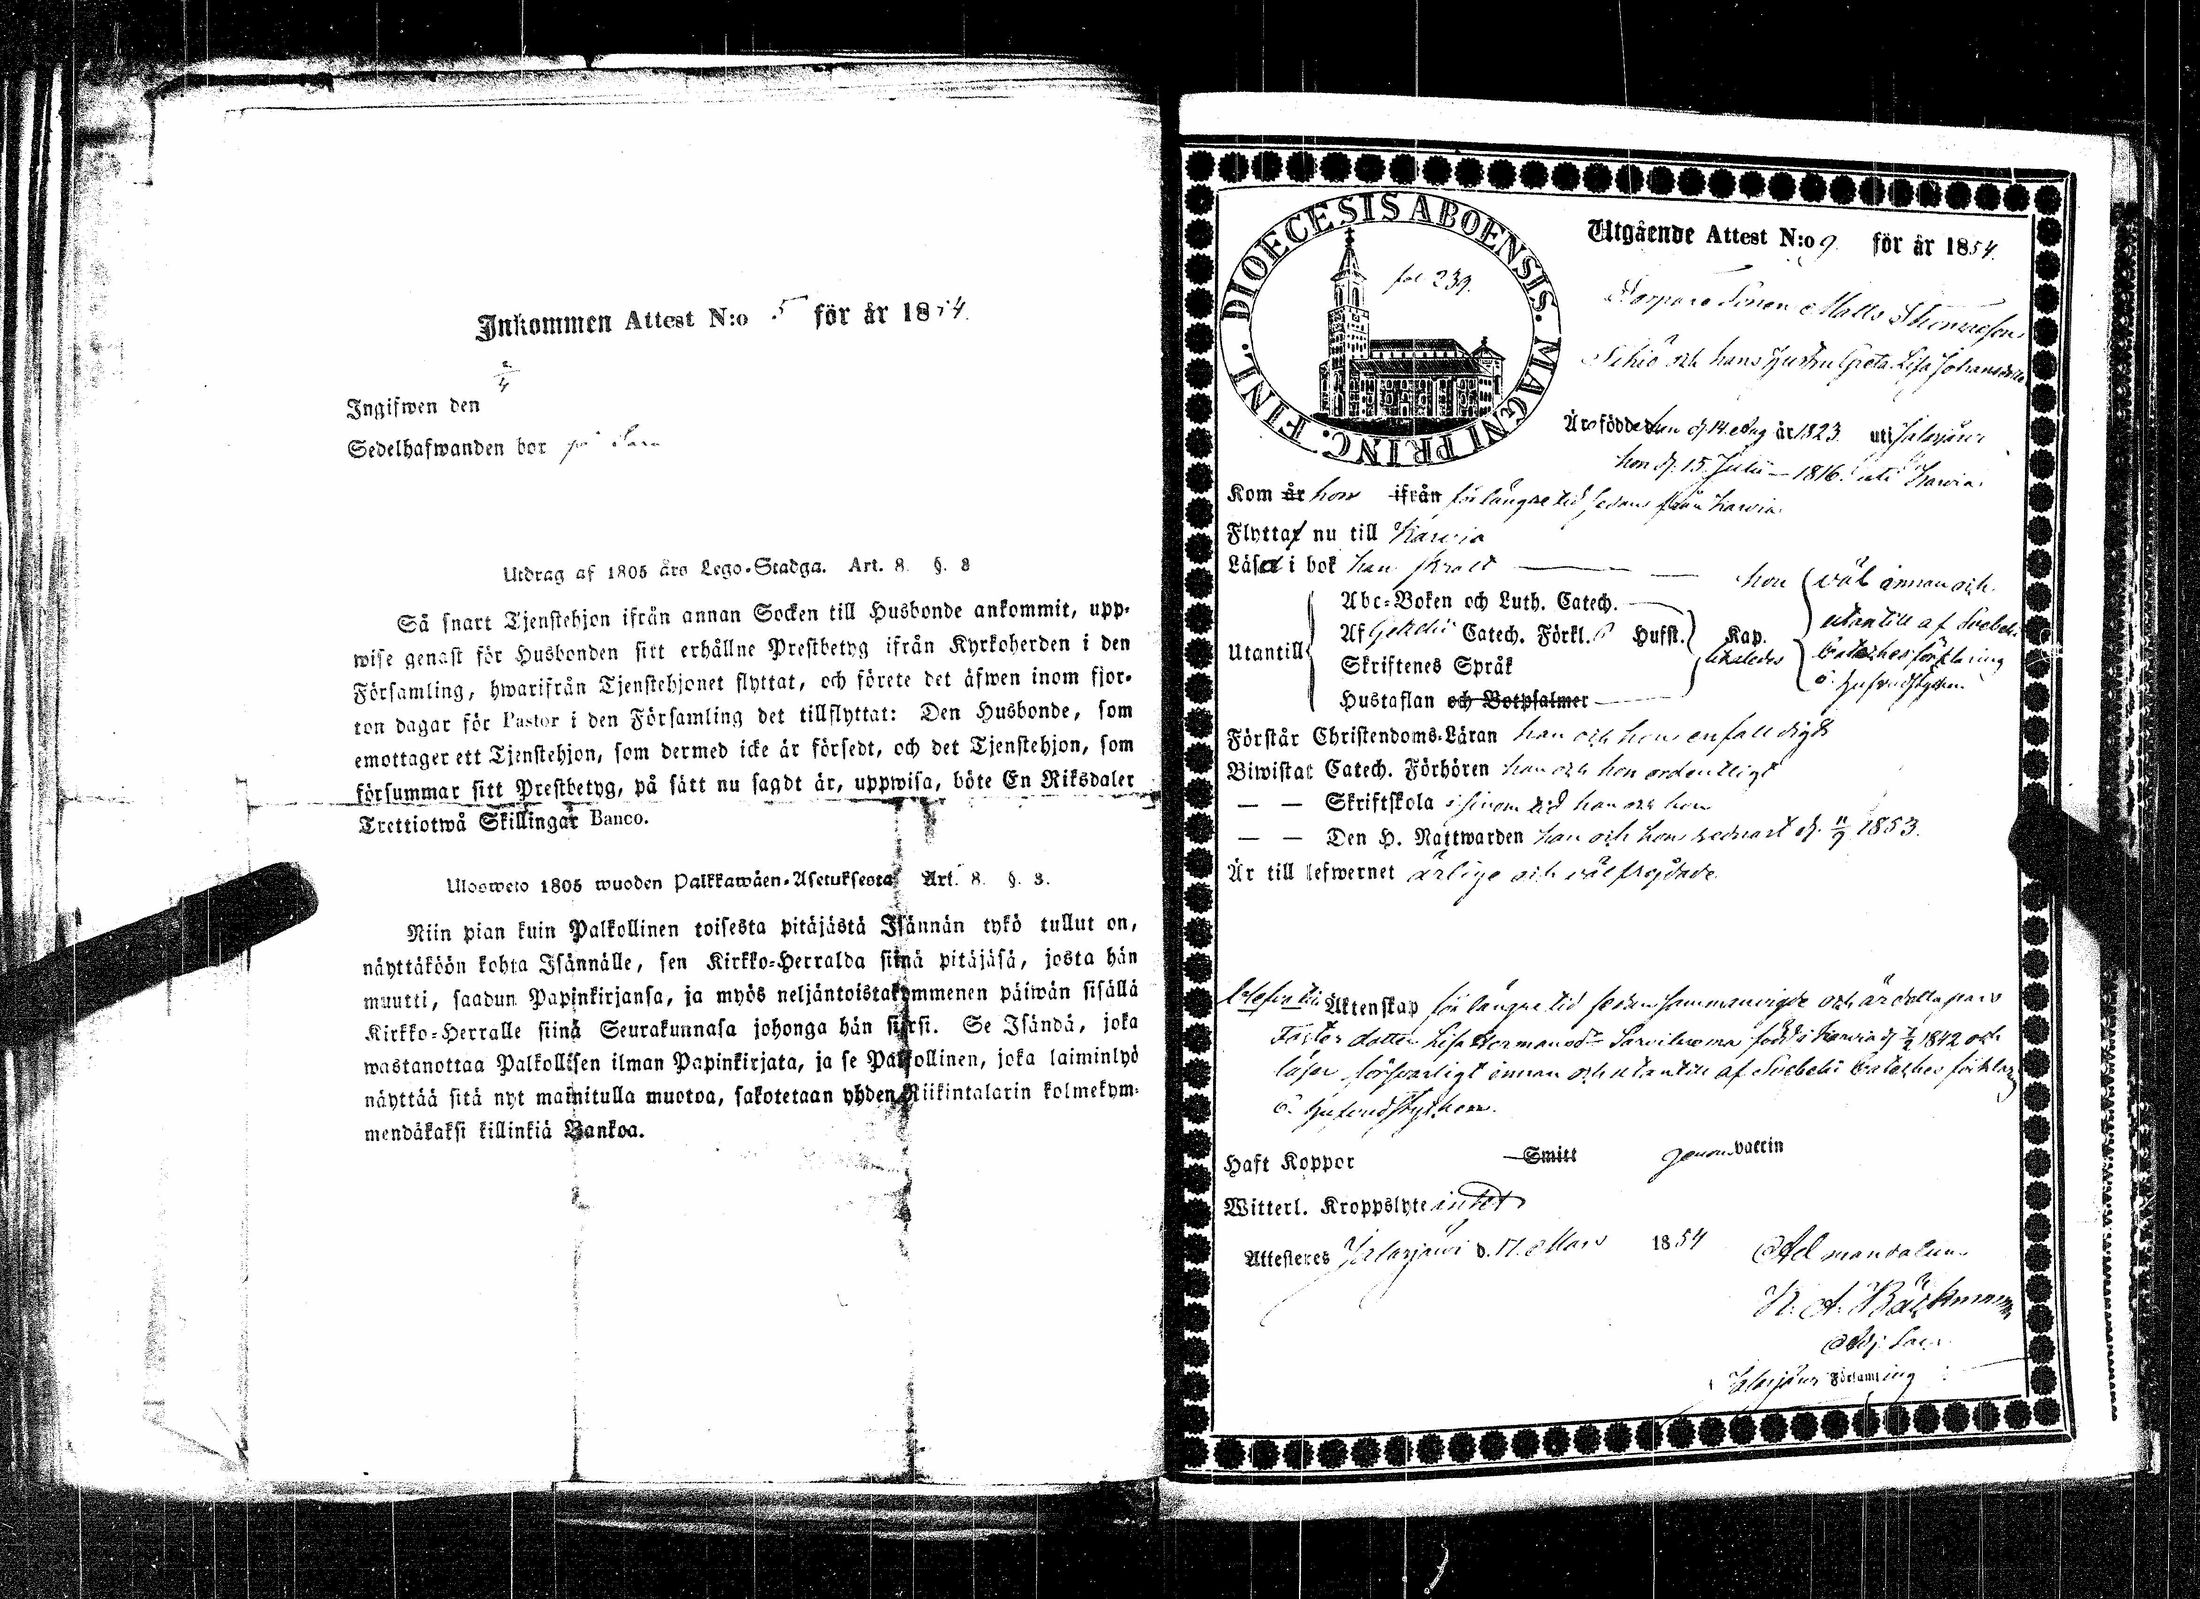 Inkommen Attest N:o 5 för år 1854.
2/4
Ingifwen den
Sedelhafwanden bor på
Utdrag af 1805 års Lego-Stadga. Art. 8. §. 3
Så snart Tjenstehjon ifrån annan Socken till Husbonde ankommit, upp-
wise genast för Husbonden sitt erhållne Prestbetyg ifrån Kyrkoherden i den
Församling, hwarifrån Tjenstehjonet flyttat, och förete det äfwen inom fjor-
ton dagar för Pastor i den Församling det tillflyttat: Den Husbonde, som
emottager ett Tjenstehjon, som dermed icke är försedt, och det Tjenstehjon, som
försummar sitt Prestbetyg, på sätt nu sagdt är, uppwisa, böte En Riksdaler
Trettiotwå Skillingar Banco.
Ulosweto 1805 wuoden Palkkawäen-Asetuksesta Art. 8. §. 3.
Niin pian kuin Palkollinen toisesta pitäjästä Isännän tykö tullut on,
näyttäköön kohta Isännälle, sen Kirkko-Herralda siinä pitäjäsä, josta hän
muutti, saadun Papinkirjansa, ja myös neljäntoistakymmenen päiwän sisällä
Kirkko-Herralle siinä Seurakunnasa johonga hän siirsi. Se Isändä, joka
wastanottaa Palkollisen ilman Papinkirjata, ja se Palkollinen, joka laiminlyö
näyttää sitä nyt mainitulla muotoa, sakotetaan yhden Riikintalarin kolmekym-
mendäkaksi killinkiä Bankoa.
DIOECESIS ABOENSIS. MAGNI PRINC. FINL.
fol 239.
Utgående Attest N:o 9. för år 1854.
Matts
och hans hustru Greta Lisa Johansdotter
Äro födde han d. 14 Aug år 1823. uti Jalasjärvi
hon d. 15 Julii 1816. uti Karvia.
Kom år hon ifrån för längre tid sedan från Karvia
Flyttat nu till Karvia
Läser i bok han svagt hon väl innan och
Abc-Boken och Luth. Catech. utantill af Svebelii
Utantill Af Catech. Förkl. 6 Hufst. Kap. likaledes Cateches förklaring
Skriftenes Språk 6 hufvudstycken
Hustaflan och Botpsalmer
Förstår Christendoms-Läran han och hon enfaldigt
Biwistat Catech. Förhören han och hon ordentligt
— — Skriftskola i sinom tid han och hon
— — Den H. Nattwarden han och hon sednast d. 11/9 1853.
Är till lefwernet ärlige och väl frejdade.
Äktenskap för längre tid sedan sammanvigde och är detta pars
Foster dotter Lisa Hermansdr född i Karvia d. 1842 och
läser försvarligt innan och utantill af Svebelii Cateches förklaring
6 hufvudstycken.
Haft Koppor Smitt genom vaccin
Witterl. Kroppslyte intet
Attesteres Jalasjärvi d. 17. Mars 1854 Ad mandatum
Bäckman
Adj. Sacr.
Jalasjärvi Församling